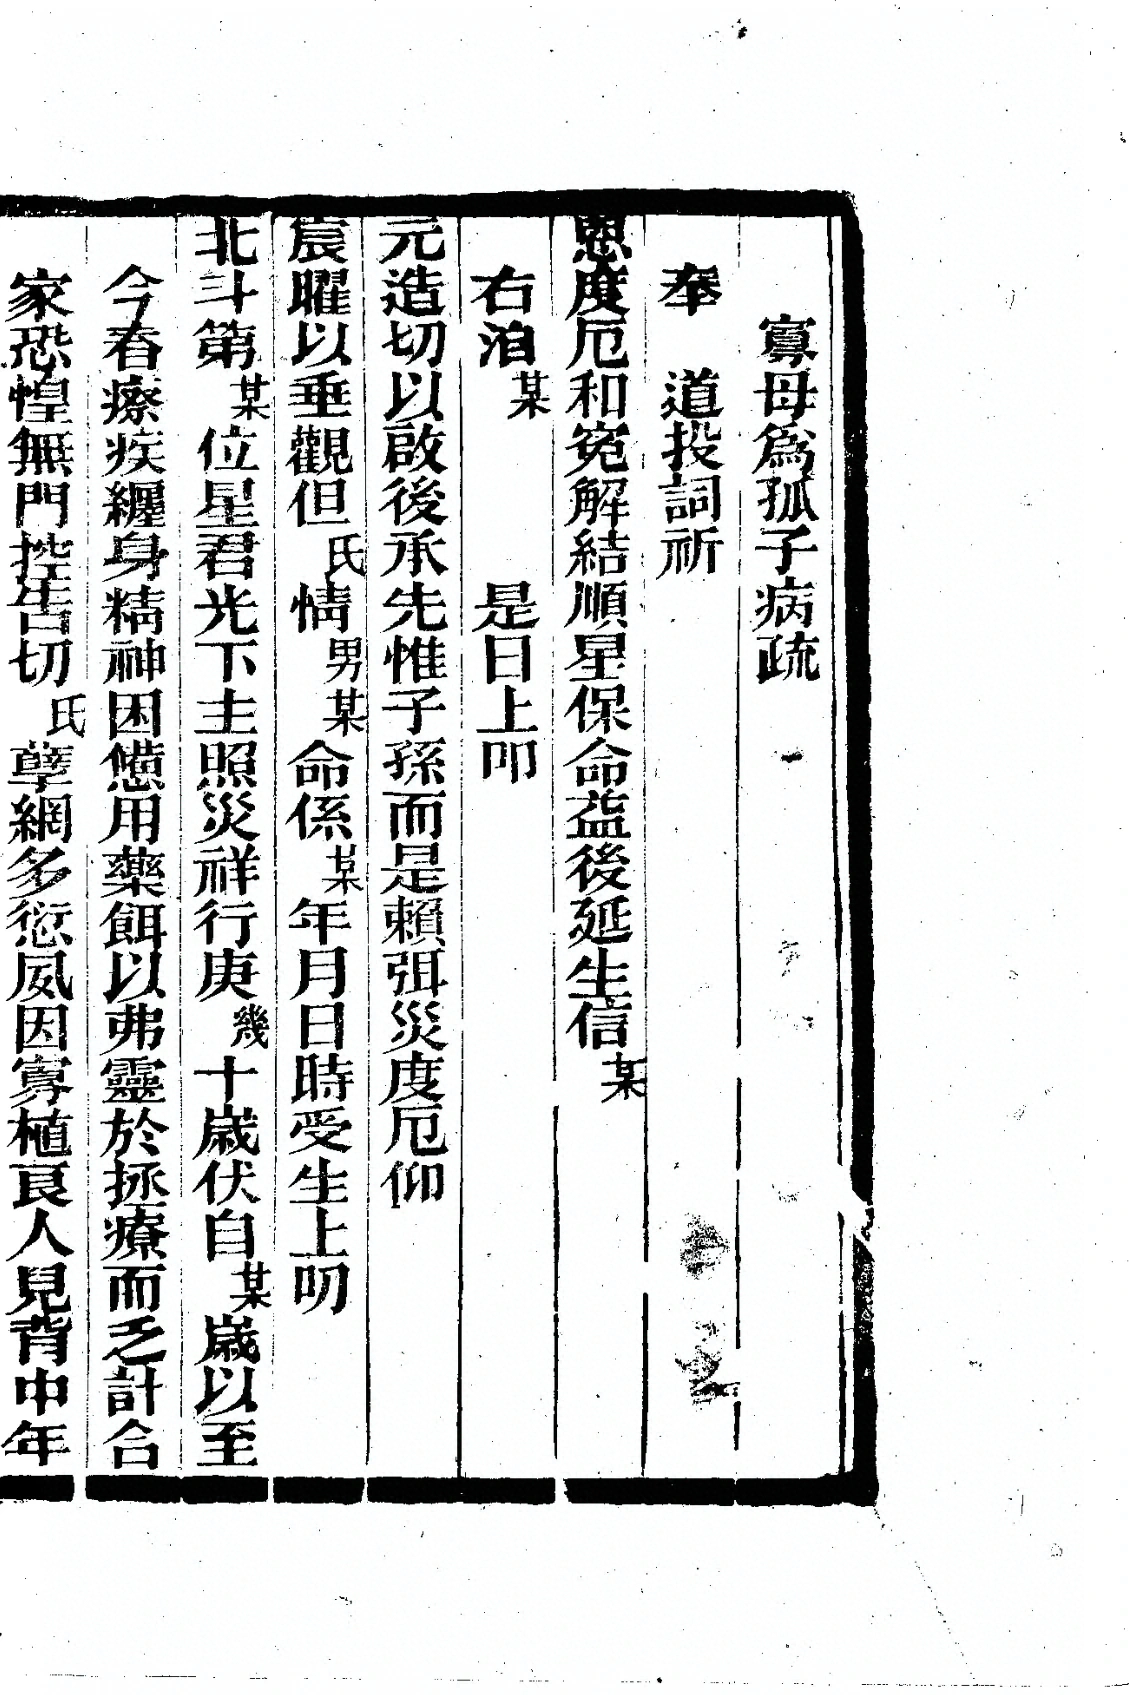 寡母爲孤子病疏
奉　道投詞祈
恩度厄和冤解結順星保命益後延生信某
右洎某　是日上叩
元造切以啟後承先惟子孫而是賴弭災度厄仰
宸曜以垂觀但氏情男某命係某年月日時受生上叨
北斗第某位星君光下主照災祥行庚幾十歲伏自某歲以至
今春瘵疾纏身精神困憊用藥餌以弗靈於拯療而乏計合
家恐惶無門控告切氏孽網多愆夙因寡植良人見背中年